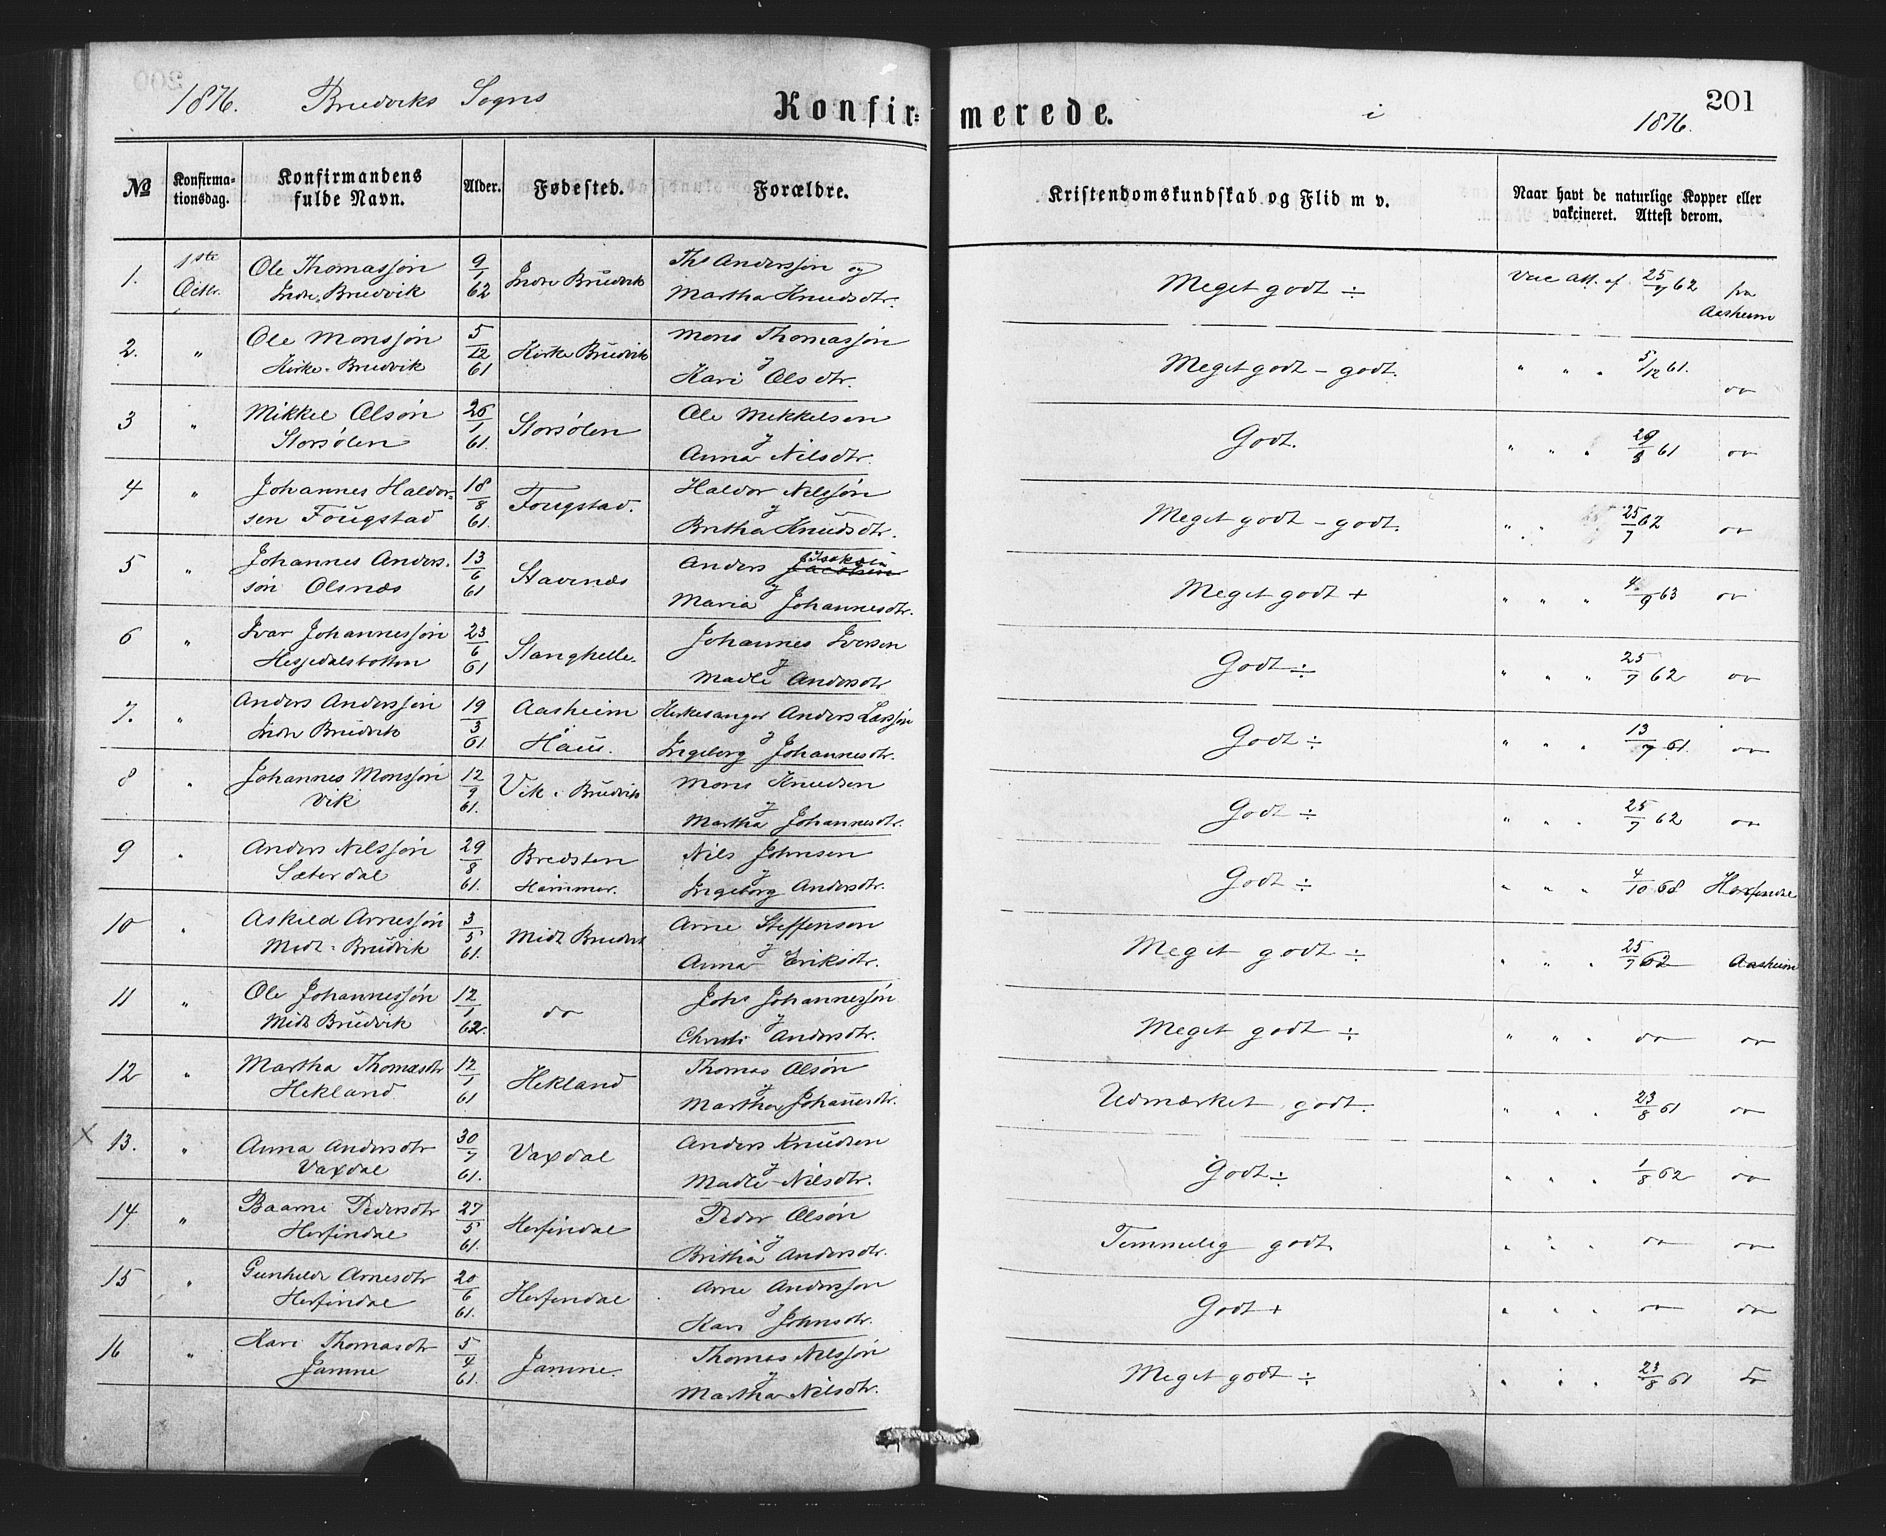 1876. Bruviks Sogns Konfirmerede. i 1876. 201
№ Konfirmationsdag. Konfirmandens fulde Navn. Alder. Fødested. Forældre. Kristendomskundskab og Flid m v. Naar havt de naturlige Kopper eller vakcineret. Attest derom.
1. 1ste Octbr. Ole Thomassøn Indre Bruvik 9/1 62 Indre Bruvik Ths Anderssøn og Martha Knudsdtr. Meget godt ÷ Vac att. af 25/7 62 fra Aasheim
2. " Ole Monssøn Kirke-Bruvik 5/12 61 Kirke Bruvik Mons Thomassøn & Kari Olsdtr. Meget godt - godt. " " " 5/12 61. do
3 " Mikkel Olsøn Storsølen 26/1 61. Storsølen Ole Mikkelsen & Anna Nilsdtr. Godt. " " " 29/8 61 do
4 " Johannes Haldorsen Fougstad 18/8 61. Fougstad. Haldor Nilssøn & Britha Knudsdtr. Meget godt - godt. " " 25/7 62 do
5 " Johannes Anderssøn Olsnæs 13/6 61 Stavenæs Anders Isaksen & Maria Johannesdtr. Meget godt + " " " 4/9 63 do
6 " Ivar Johannessøn Hesjedalsbotten 23/6 61 Stanghelle. Johannes Iversen & Madle Andersdtr Godt ÷ " " " 25/7 62 do
7. " Anders Anderssøn Indre Bruvik 19/3 61 Aasheim Haus. Kirkesanger Anders Larssøn & Ingeborg Johannesdtr. Godt ÷ " " " 13/7 61. do
8 " Johannes Monssøn Vik 12/9 61. Vik i Bruvik Mons Knudsen & Martha Johannesdtr. Godt ÷ " " " 25/7 62 do
9 " Anders Nilssøn Sæterdal 29/8 61. Bredsten Hammer. Nils Johnsen & Ingeborg Andersdtr. Godt ÷ " " " 4/10 68 Herfindal
10 " Askild Arnessøn Midt-Bruvik 3/5 61. Midt Bruvik Arne Steffensen & Anna Eriksdtr. Meget godt ÷ " " " 25/7 62 Aasheim
11 " Ole Johannessøn Midt Bruvik 12/1 62. do Johs Johannessøn & Christi Andersdtr. Meget godt ÷ " " " do do
12 " Martha Thomasdtr Hekland 12/1 61 Hekland Thomas Olsøn & Martha Johannesdtr. Udmærket godt. " " " 23/8 61 do
X 13. " Anna Andersdtr Vaxdal 30/7 61. Vaxdal Anders Knudsen & Madle Nilsdtr. Godt ÷ " " " 1/8 62 do
14 " Baarni Pedersdtr Herfindal 27/5 61. Herfindal Peder Olsøn & Britha Andersdtr. Temmelig godt " " " do do
15 " Gunhilde Arnesdtr Herfindal 20/6 61. Herfindal Arne Anderssøn & Kari Johnsdtr. Godt + " " " do do
16 " Kari Thomasdtr Jamne 5/4 61. Jamne. Thomas Nilssøn & Martha Nilsdtr. Meget godt ÷ " " " 23/8 61 do